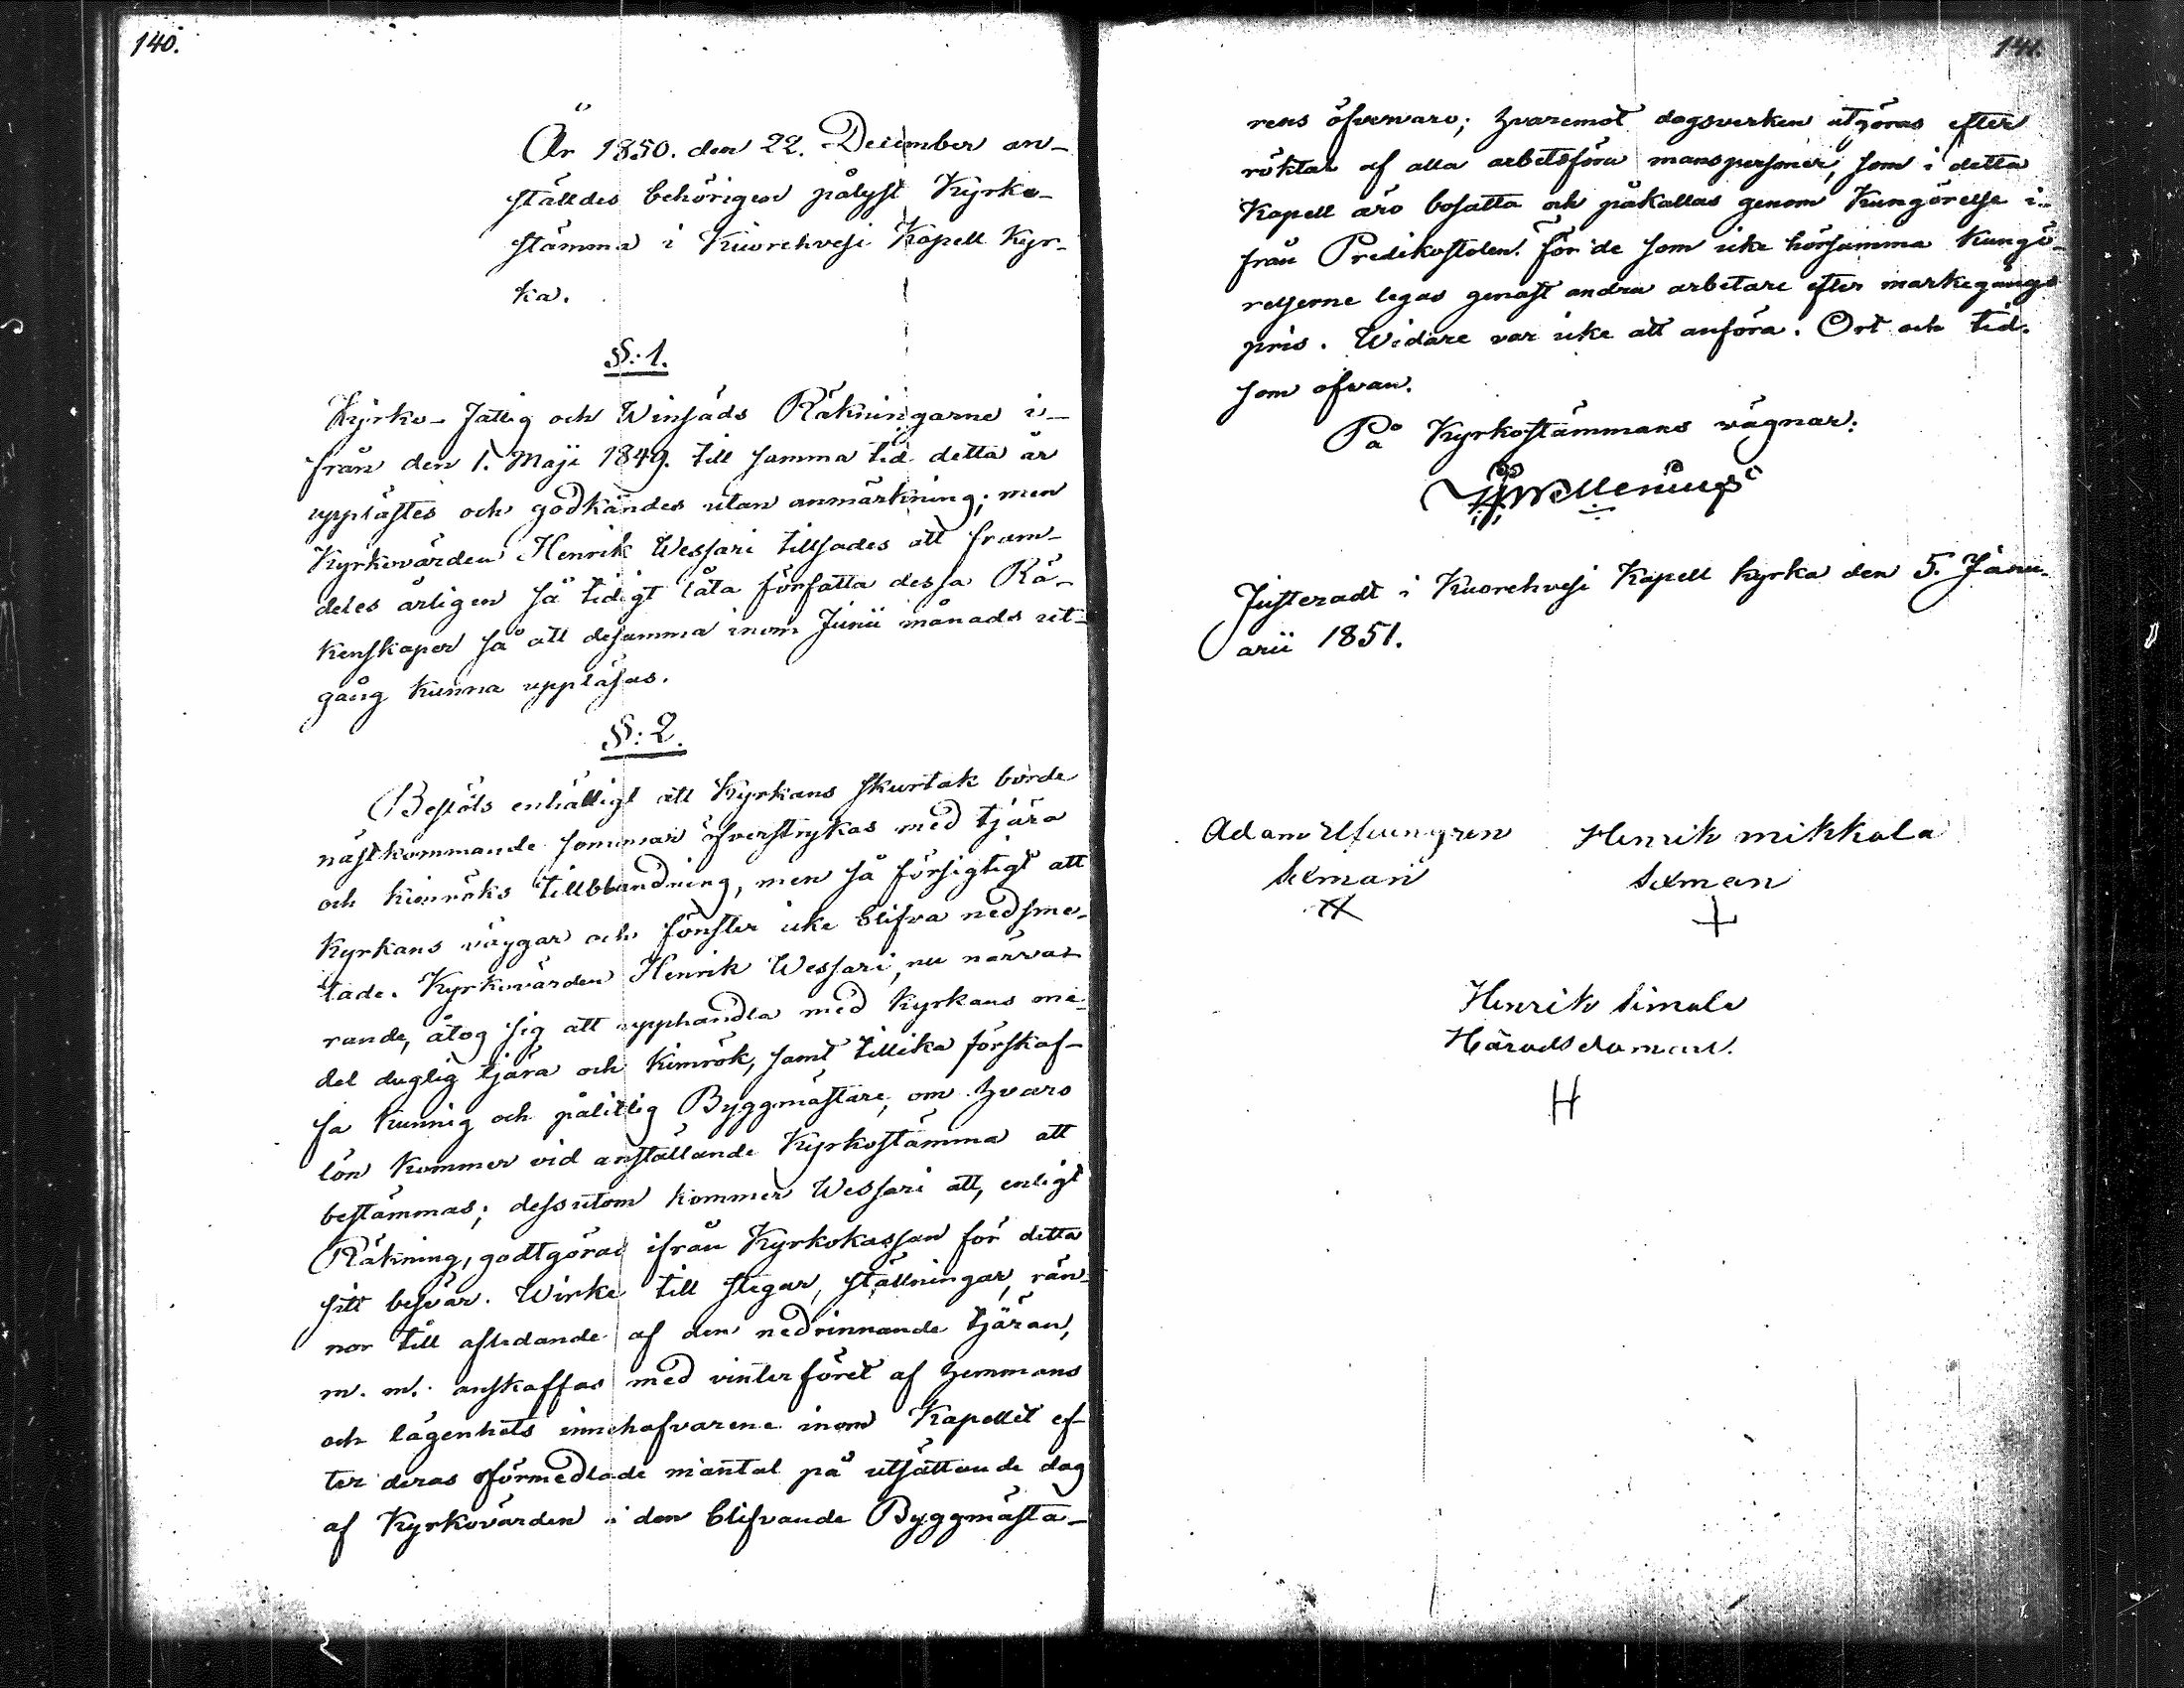 140.
År 1850. den 22. December an-
ställdes behörigen pålyst Kyrko-
stämma i Kuorehvesi Kapell Kyr-
ka.
§: 1.
Kyrko- Fattig och Winsäds Räkningarne i-
från den 1. Maji 1849. till samma tid detta år
upplästes och godkändes utan anmärkning; men
Kyrkovärden Henrik Wessari tillsades att fram-
deles årligen så tidigt låta författa dessa Rä-
kenskaper så att desamma inom Junii månads ut-
gång kunna uppläsas.
§: 2.
Beslöts enhälligt att Kyrkans skurtak borde
nästkommande sommar öfverstrykas med tjära
och kimröks tillblandning, men så försigtigt att
Kyrkans väggar och fönster icke blifva nedsme-
tade. Kyrkovärden Henrik Wessari, nu närva-
rande, åtog sig att upphandla med Kyrkans me-
del duglig tjära och Kimrök, samt tillika förskaf-
fa kunnig och pålitlig Byggmästare, om hvars
lön kommer vid anställande Kyrkostämma att
bestämmas; dessutom kommer Wessari att, enligt
Räkning, godtgöras ifrån Kyrkokassan för detta
sitt besvär. Wirke till stegar, ställningar, rän-
nor till afledande af den nedrinnande tjäran,
m. m. anskaffas med vinterföret af hemmans
och lägenhets innehafvarene inom Kapellet ef-
ter deras förmedlade mantal på utsättande dag
af Kyrkovärden i den blifvande Byggmästa-
141.
rens öfvervaro; hvaremot dagsverken utgöras efter
röktal af alla arbetsföra manspersoner, som i detta
Kapell äro bosatta och påkallas genom Kungörelse i-
från Predikostolen. För de som icke hörsamma Kungö-
relserne legas genast andra arbetare efter markegångs
pris. Widare var icke att anföra. Ort och tid.
som ofvan.
På Kyrkostämmans vägnar:
Justeradt i Kuorehvesi Kapell Kyrka den 5. Janu-
arii 1851.
Adam Henrik Mikkola
Sexman Sexman
Henrik Simola
Häradsdomare.
H